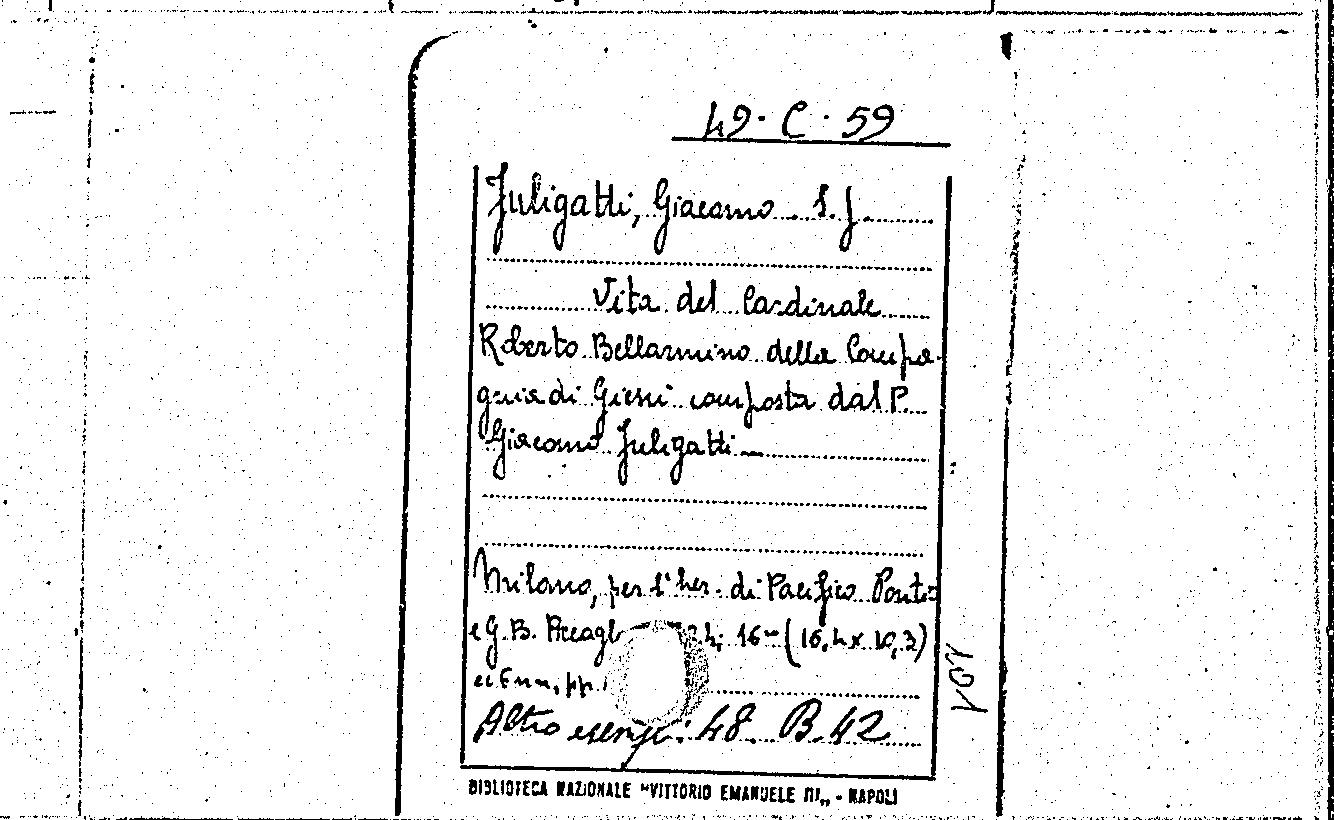 49. C. 59
Fuligatti, Giacomo S. J.
Vita del Cardinale
Roberto Bellarmino della Compa-
gnia di Giesù composta dal P.
Giacomo Fuligatti
Milano, per l'her. di Pacifico Pontio
e G.B. Piccagl 24; 16° (16,4 x 10,3)
pp.
Altro esemp.: 48. B. 42
BIBLIOTECA NAZIONALE "VITTORIO EMANUELE III" - NAPOLI